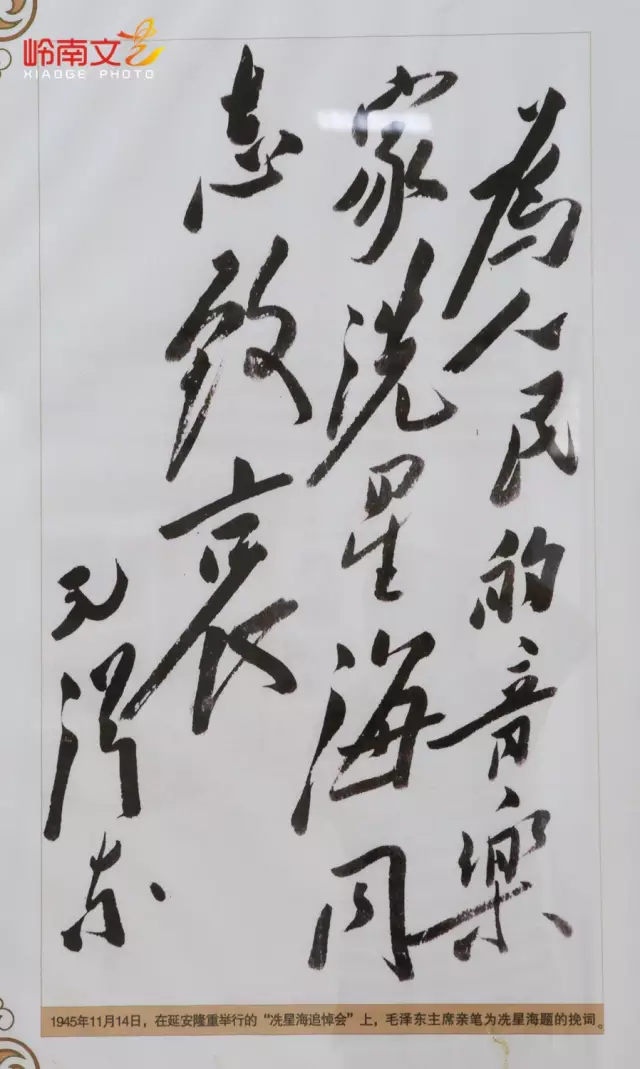 岭南文艺
XIAOGE PHOTO
為人民的音樂
家洗星海同
志致哀
毛澤东
1945年11月14日，在延安隆重举行的“冼星海追悼会”上，毛泽东主席亲笔为冼星海题的挽词。